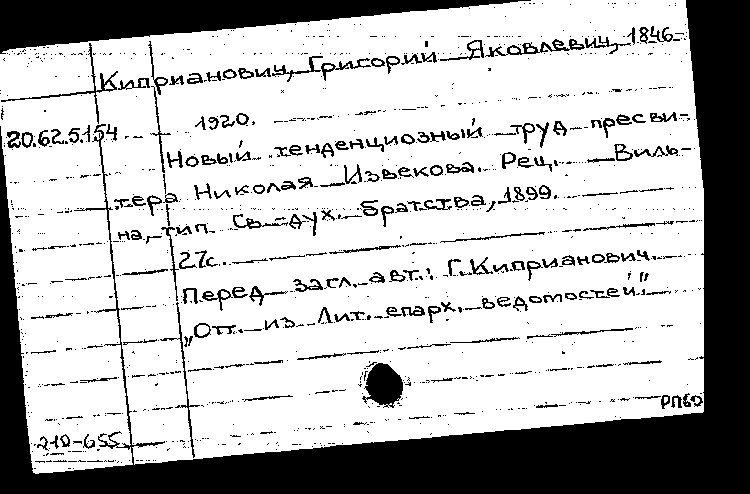 Киприанович, Григорий Яковлевич, 1846-
20.62.5.154
1920.
Новый тенденциозный труд пресви-
тера Николая Извекова. Рец. Виль-
на, тип. Св.-дух. братства, 1899.
27с.
Перед загл. авт.: Г. Киприанович.
„Отт. из Лит. епарх. ведомостей"
210-655
РП60